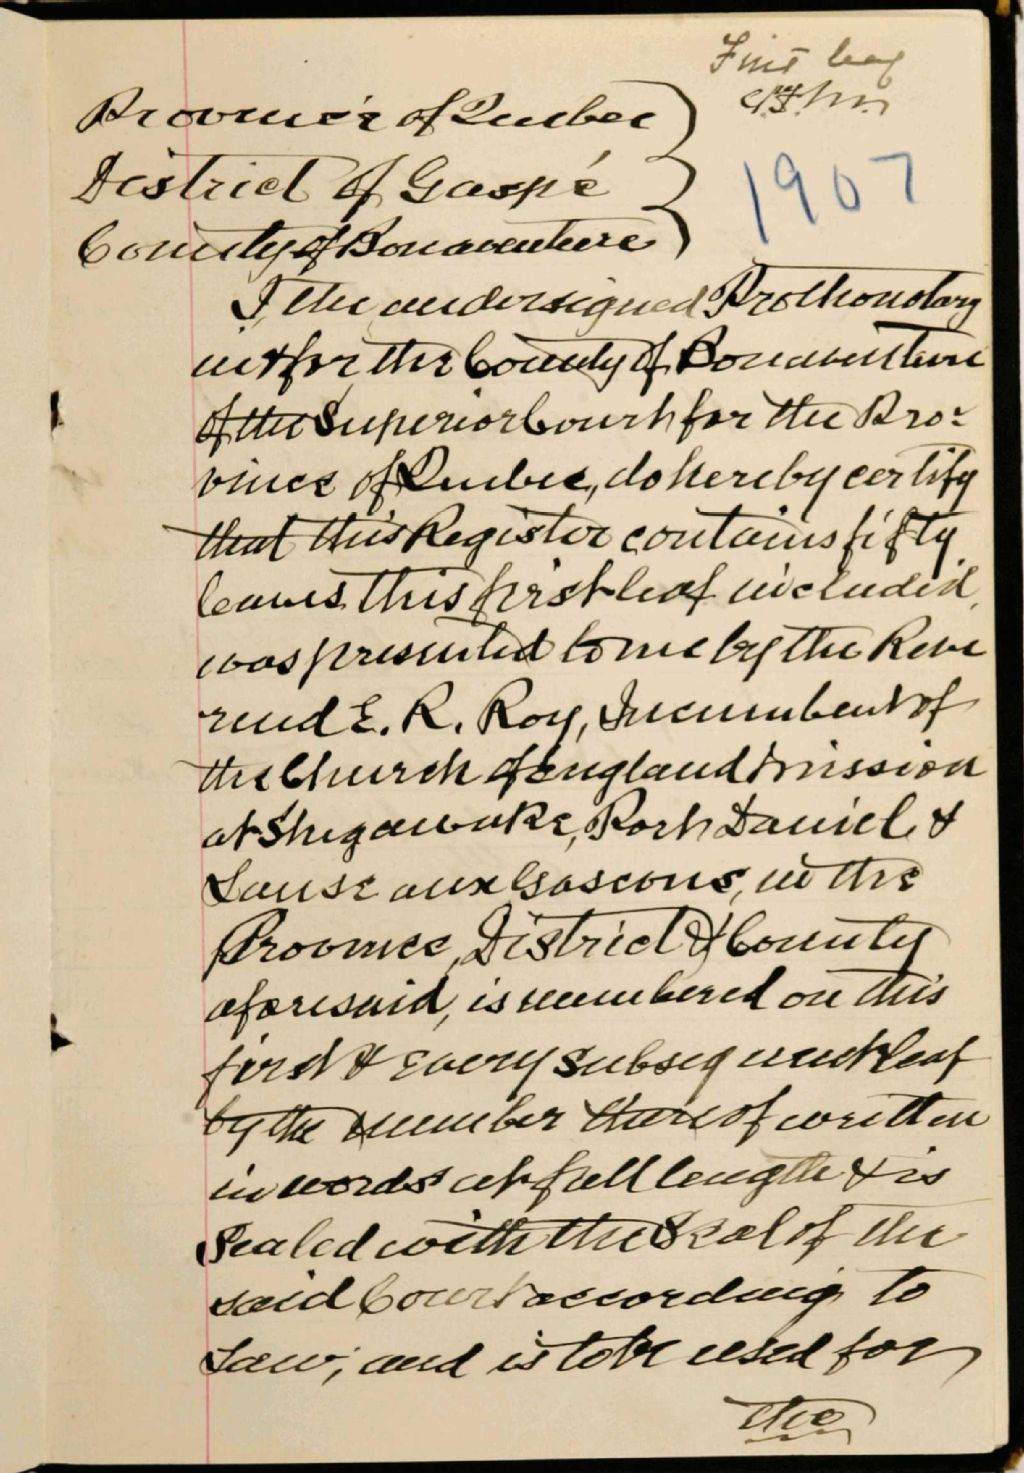 First leaf
1907
Province of Quebec
District of Gaspé
County of Bonaventure
I, the undersigned Prothonotary
in & for the County of Bonaventure
of the Superior Court for the Pro-
vince of Quebec, do hereby certify
that this Register contains fifty
leaves this first leaf included,
was presented to me by the Reve
rend E. R. Roy, Incumbent of
the Church of England Mission
at Shigawake, Port Daniel, &
Lanse aux Gascons, in the
Province, District & County
aforesaid, is numbered on this
first & every subsequent leaf
by the number thereof written
in words at full length & is
Sealed with the Seal of the
said Court according to
Law; and is to be used for
the